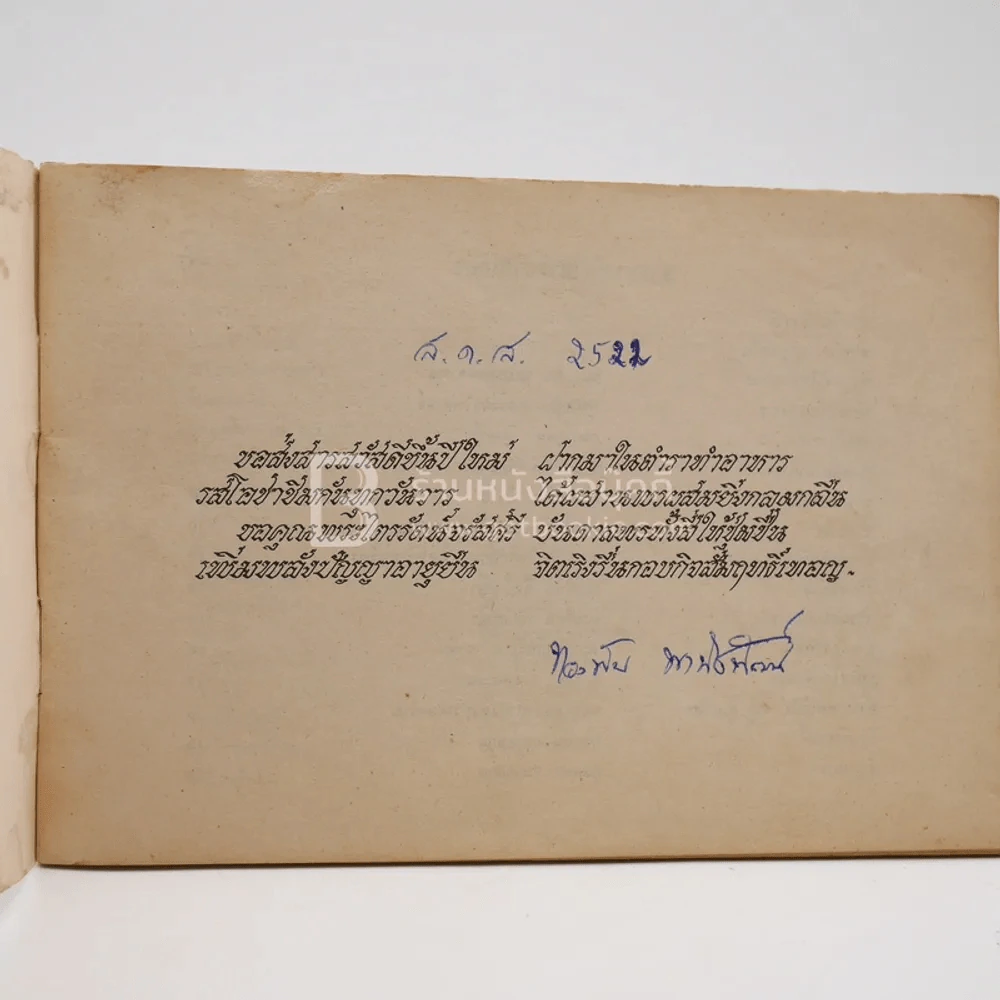 ส.ค.ส. 2522
ขอส่งสารสวัสดีขึ้นปีใหม่ ฝากมาในตำราทำอาหาร
รสโอชาชิมกันทุกวันวาร ได้ผสานพรผสมยิ่งกลมกลืน
ขอคุณพระไตรรัตน์จรัสศรี บันดาลพรทั้งสี่ให้ชุ่มชื่น
เพิ่มพลังปัญญาอายุยืน จิตเริงรื่นกอบกิจสัมฤทธิ์เทอญ.
ร้านหนังสือบุ๊คดู